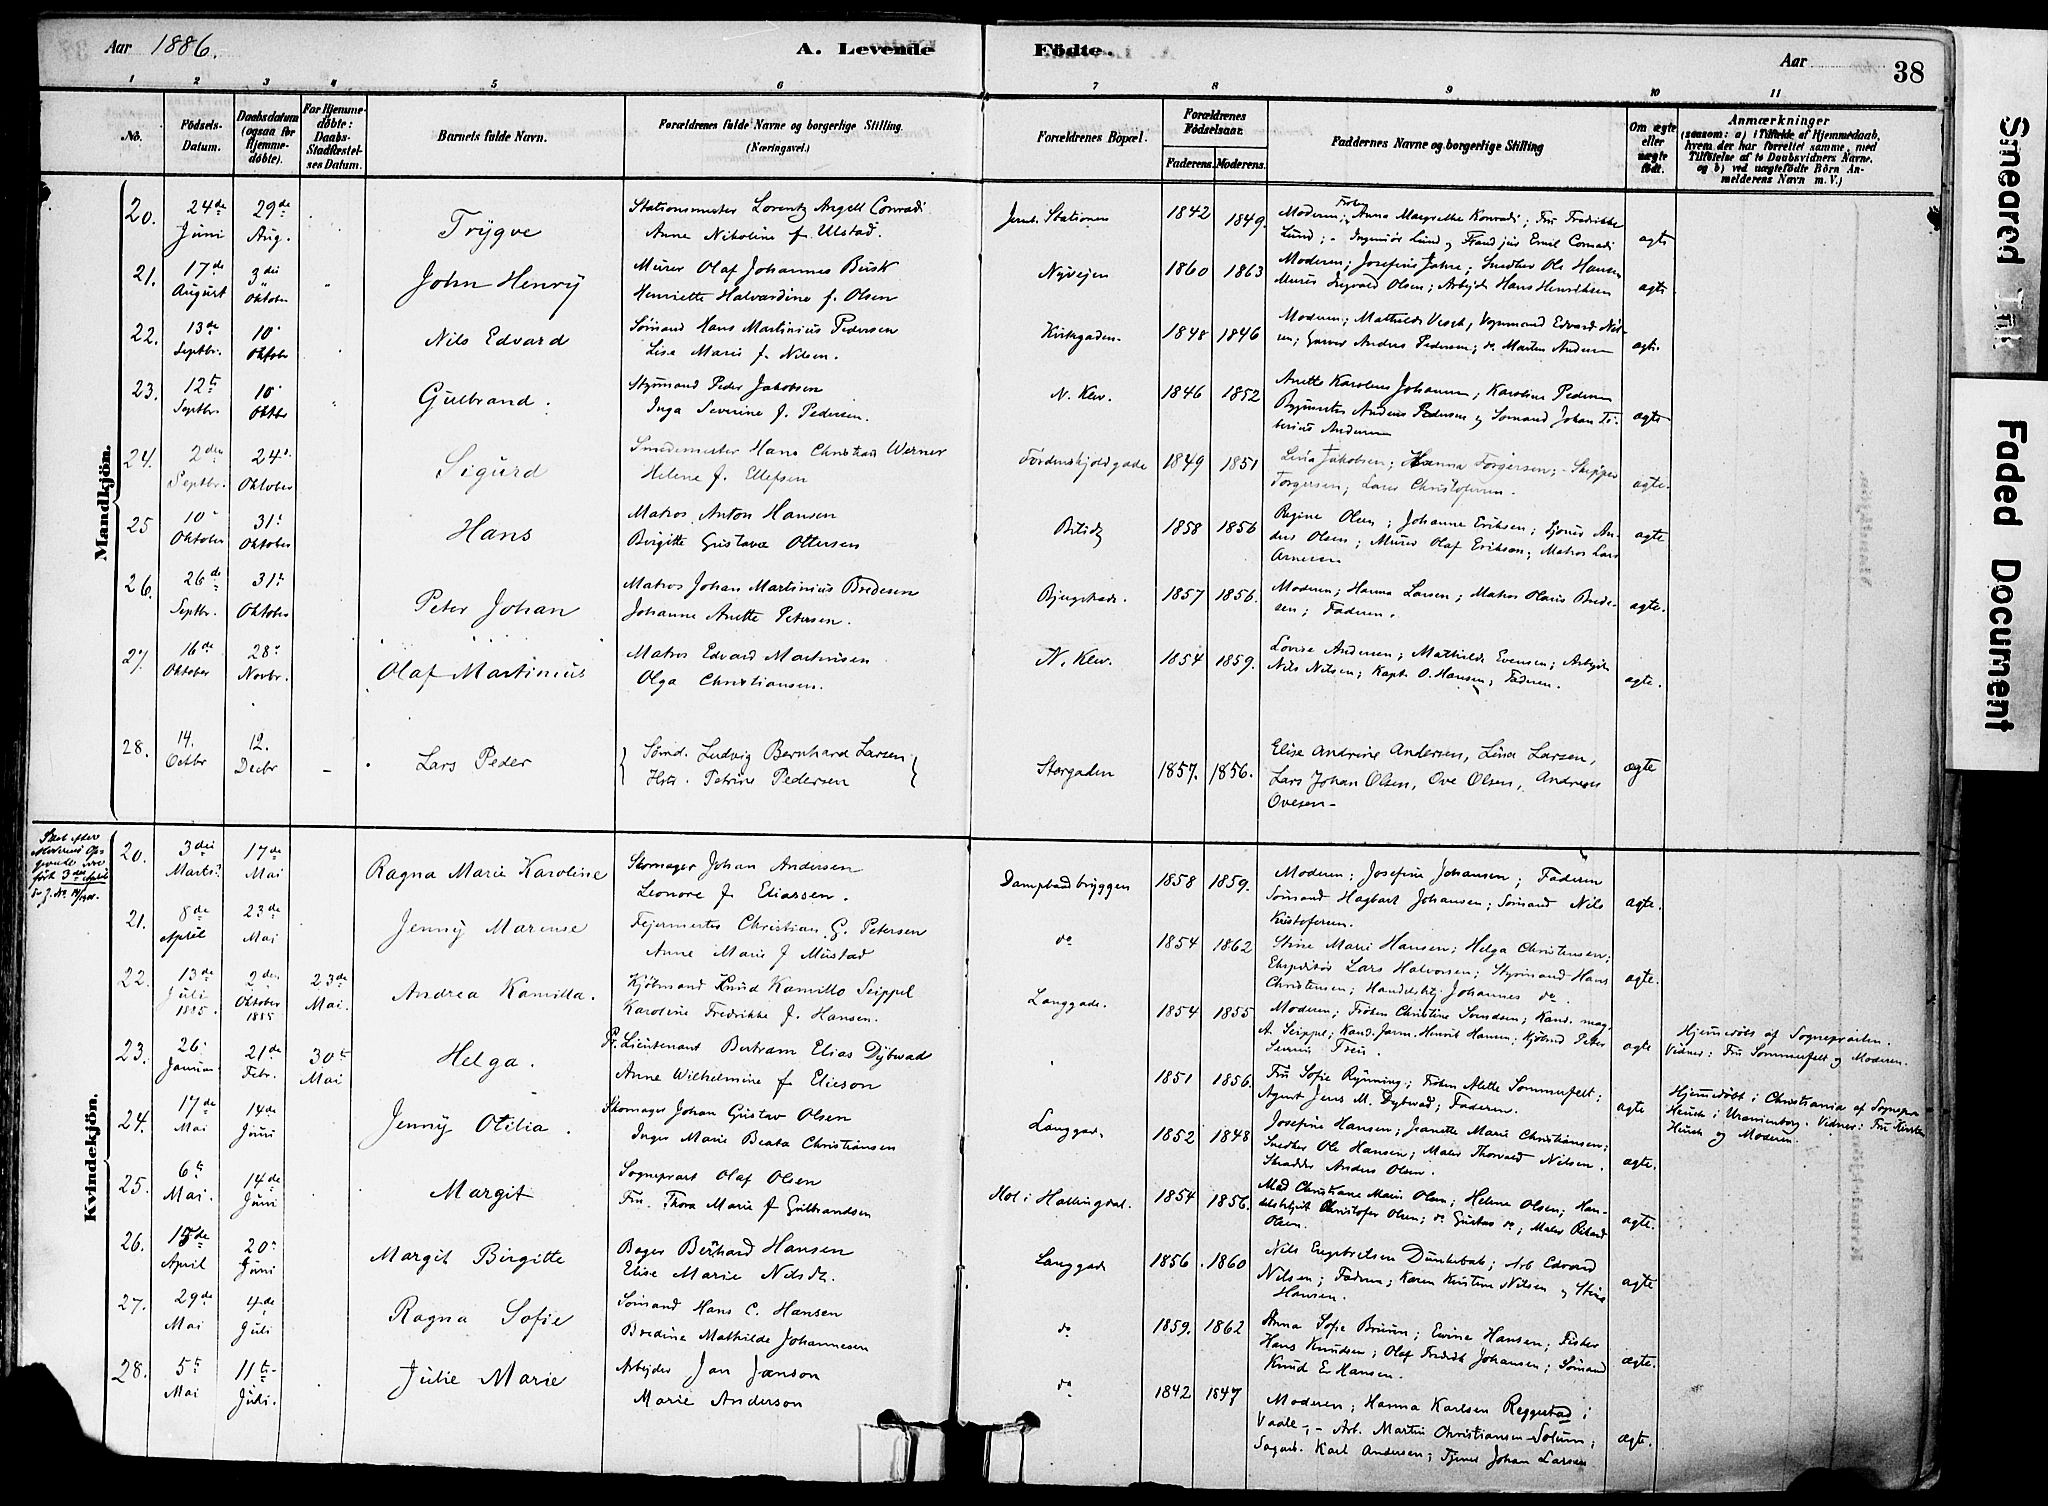 Aar 1886.
A. Levende
Födte.
Aar
38
1 2 3 4 5 6 7 8 9 10 11
No.
Födsels-Datum.
Daabsdatum (ogsaa for Hjemme-døbte).
For Hjemme-døbte: Daabs-Stadfæstel-ses Datum.
Barnets fulde Navn.
Forældrenes fulde Navne og borgerlige Stilling. (Næringsvei.)
Forældrenes Bopæl.
Forældrenes Födselsaar.
Faderens. Moderens.
Faddernes Navne og borgerlige Stilling
Om ægte eller uægte födt.
Anmærkninger
(saasom: a) i Tilfælde af Hjemmedaab, hvem der har forrettet samme, med Tilföielse af to Daabsvidners Navne. og b) ved uægtefödte Börn An-melderens Navn m. V.)
Mandkjön.
20. 24de Juni 29de Aug. Trygve
Stationsmester Lorentz Angell Conradi
Anne Nikoline f. Ulstad.
Jernb. Stationen 1842 1849.
Moderen; Frøken Anna Margrethe Konradi; Fru Fredrikke
Lund; - Ingeniør Lund og Emil Conradi
ægte
21. 17de August 3die Oktober John Henry
Murer Olaf Johannes Busk
Henriette Halvardine f. Olsen
Nyvejen 1860 1863
Moderen; Josefine ; Snedker Ole Hansen
Murer Olsen; Arbejder Hans Henriksen
ægte
22. 13de Septbr. 10. Oktober Nils Edvard
Sømand Hans Martinius Pedersen
Lise Marie f. Nilsen.
Kirkegaden 1848 1846
Moderen; Mathilde ; Edvard Nil-
sen; Garver Andreas Pedersen; do. Martin Andersen
ægte.
23. 12te Septbr. 10. Oktbr Gulbrand.
Styrmand Peder Jakobsen
Inga Severine f. Pedersen.
N. Klev. 1846 1852
Anette Karoline Johansen; Karoline Pedersen
Anders Pedersen og Sømand Johan Ti-
berius Andersen
ægte
24. 2den Septbr. 24. Oktober Sigurd
Smedemester Hans Christian Werner
Helene f. Ellefsen
Tordenskjoldgade 1849 1851
Lina Jakobsen; Hanna Torgersen; - Skipper
Torgersen; Lars Christofersen.
ægte.
25 10. Oktober 31. Oktober Hans
Matros Anton Hansen
Birgitte Gustava Ottersen
1858 1856
Regine Olsen; Johanne Eriksen; An-
ders Olsen; Murer Olaf Eriksen; Matros Lars
Arnesen.
ægte
26. 26de Septbr. 31te Oktober Peter Johan
Matros Johan Martinius Bredesen
Johanne Anette Petersen.
1857 1856.
Moderen; Hanna Larsen; Matros Brede-
sen; Faderen.
ægte.
27. 16de Oktober 28. Novbr. Olaf Martinius
Matros Edvard Martinsen
Olga Christiansen.
N. Klev. 1854 1859.
Lovise Andersen; Mathilde Evensen; Arbejder
Nils Nilsen; Kapt. O. Hansen; Faderen.
ægte.
28. 14. Octbr 12. Decbr - Lars Peder
Sømd. Ludvig Bernhard Larsen
Hstr. Petrine Pedersen
Storgaden 1857. 1856.
Elise Andrine Andersen, Lina Larsen,
Lars Johan Olsen, Ove Olsen, Andreas
Ovesen-
ægte
Kvindekjön.
20. 3die Marts? 17de Mai Ragna Marie Karoline
Skomager Johan Andersen
Leonore f. Eliassen.
Dampbaadbryggen 1858 1859.
Moderen; Josefine Johansen; Faderen
Sømand Hagbart Johansen; Sømand Nils
Kristofersen.
ægte.
21. 8de April 23de Mai Jenny Marense
Fejermester Christian G. Petersen
Anne Marie f Mustad
do 1854 1862
Stine Marie Hansen; Helga Christensen;
Ekspeditør Lars Halvorsen; Styrmand Hans
Christensen; Handelsbtj. Johannes do.
ægte.
22. 13de Juli 1885. 2den Oktober 1885 23de Mai. Andrea Kamilla.
Kjøbmand Knud Kamillo Seippel
Karoline Fredrikke f. Hansen.
Langgade. 1854 1855
Moderen; Frøken Christine Svendsen; Kand. mag.
A. Seippel; Kand. Farm. Henrik Hansen; Kjøbmd Peter
Severin Treu.
ægte
Hjemmedøbt af Sognepræsten.
Vidner: Fru Sommerfelt og Moderen.
23. 26. Januar 21de Febr. 30te Mai Helga.
Pr. Lieutenant Bertram Elias Dybwad
Anne Wilhelmine f Elieson
1851 1856.
Fru Sofie Rynning; Frøken Alette Sommerfelt;
Agent Jens M. Dybwad; Faderen.
ægte
Hjemmedøbt i Christiania af Sognepr.
Heuch i Uranienborg. Vidner: Fru Kirsten
Heuch og Moderen.
24. 17de Mai 14de Juni Jenny Otilia.
Skomager Johan Gustav Olsen
Inger Marie Beata Christiansen
Langgade 1852 1848
Josefine Hansen; Jeanette Marie Christiansen;
Snedker Ole Hansen; Maler Thorvald Nilsen.
Skrædder Anders Olsen.
ægte.
25. 6te Mai. 14de Juni Margit
Sogneprest Olaf Olsen
Fru. Thora Marie f Gulbrandsen
Hol i Hallingdal. 1854 1856.
Mad Christiane Marie Olsen; Helene Olsen; Han-
delsbetjent Christofer Olsen; do Gustav do; Maler Rikard
Olsen.
ægte.
26. 15de April 20. Juni Margit Birgitte
Bager Bernhard Hansen
Elise Marie Nilsdt.
Langgade 1856. 1860
Nils Engebretsen Dunkebek; Arb Edvard
Nilsen; Faderen; Karen Kirstine Nilsen og Stina
Hansen.
ægte
27. 29de Mai 4de Juli Ragna Sofie
Sømand Hans C. Hansen
Bredine Mathilde Johannesen
do 1859. 1862
Anna Sofie Bruun; Evine Hansen; Fisker
Hans Knudsen; Olaf Fredrik Johansen; Sømand
Knud E. Hansen.
ægte.
28. 5te Mai 11te Juli. Julie Marie
Arbejder Jan Janson
Marie Anderson
do 1842 1847
Moderen; Hanna Karlsen Reggestad i
Vaale; - Arb. Martin Christiansen Solum;
Sagarb. Karl Andersen; Tjener Johan Larsen
ægte.
Smeared Ink
Faded Document